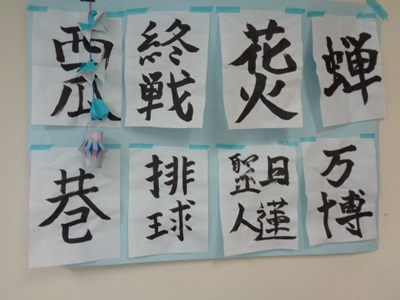 蝉
花火
終戦
西瓜
万博
日蓮
聖人
排球
巷